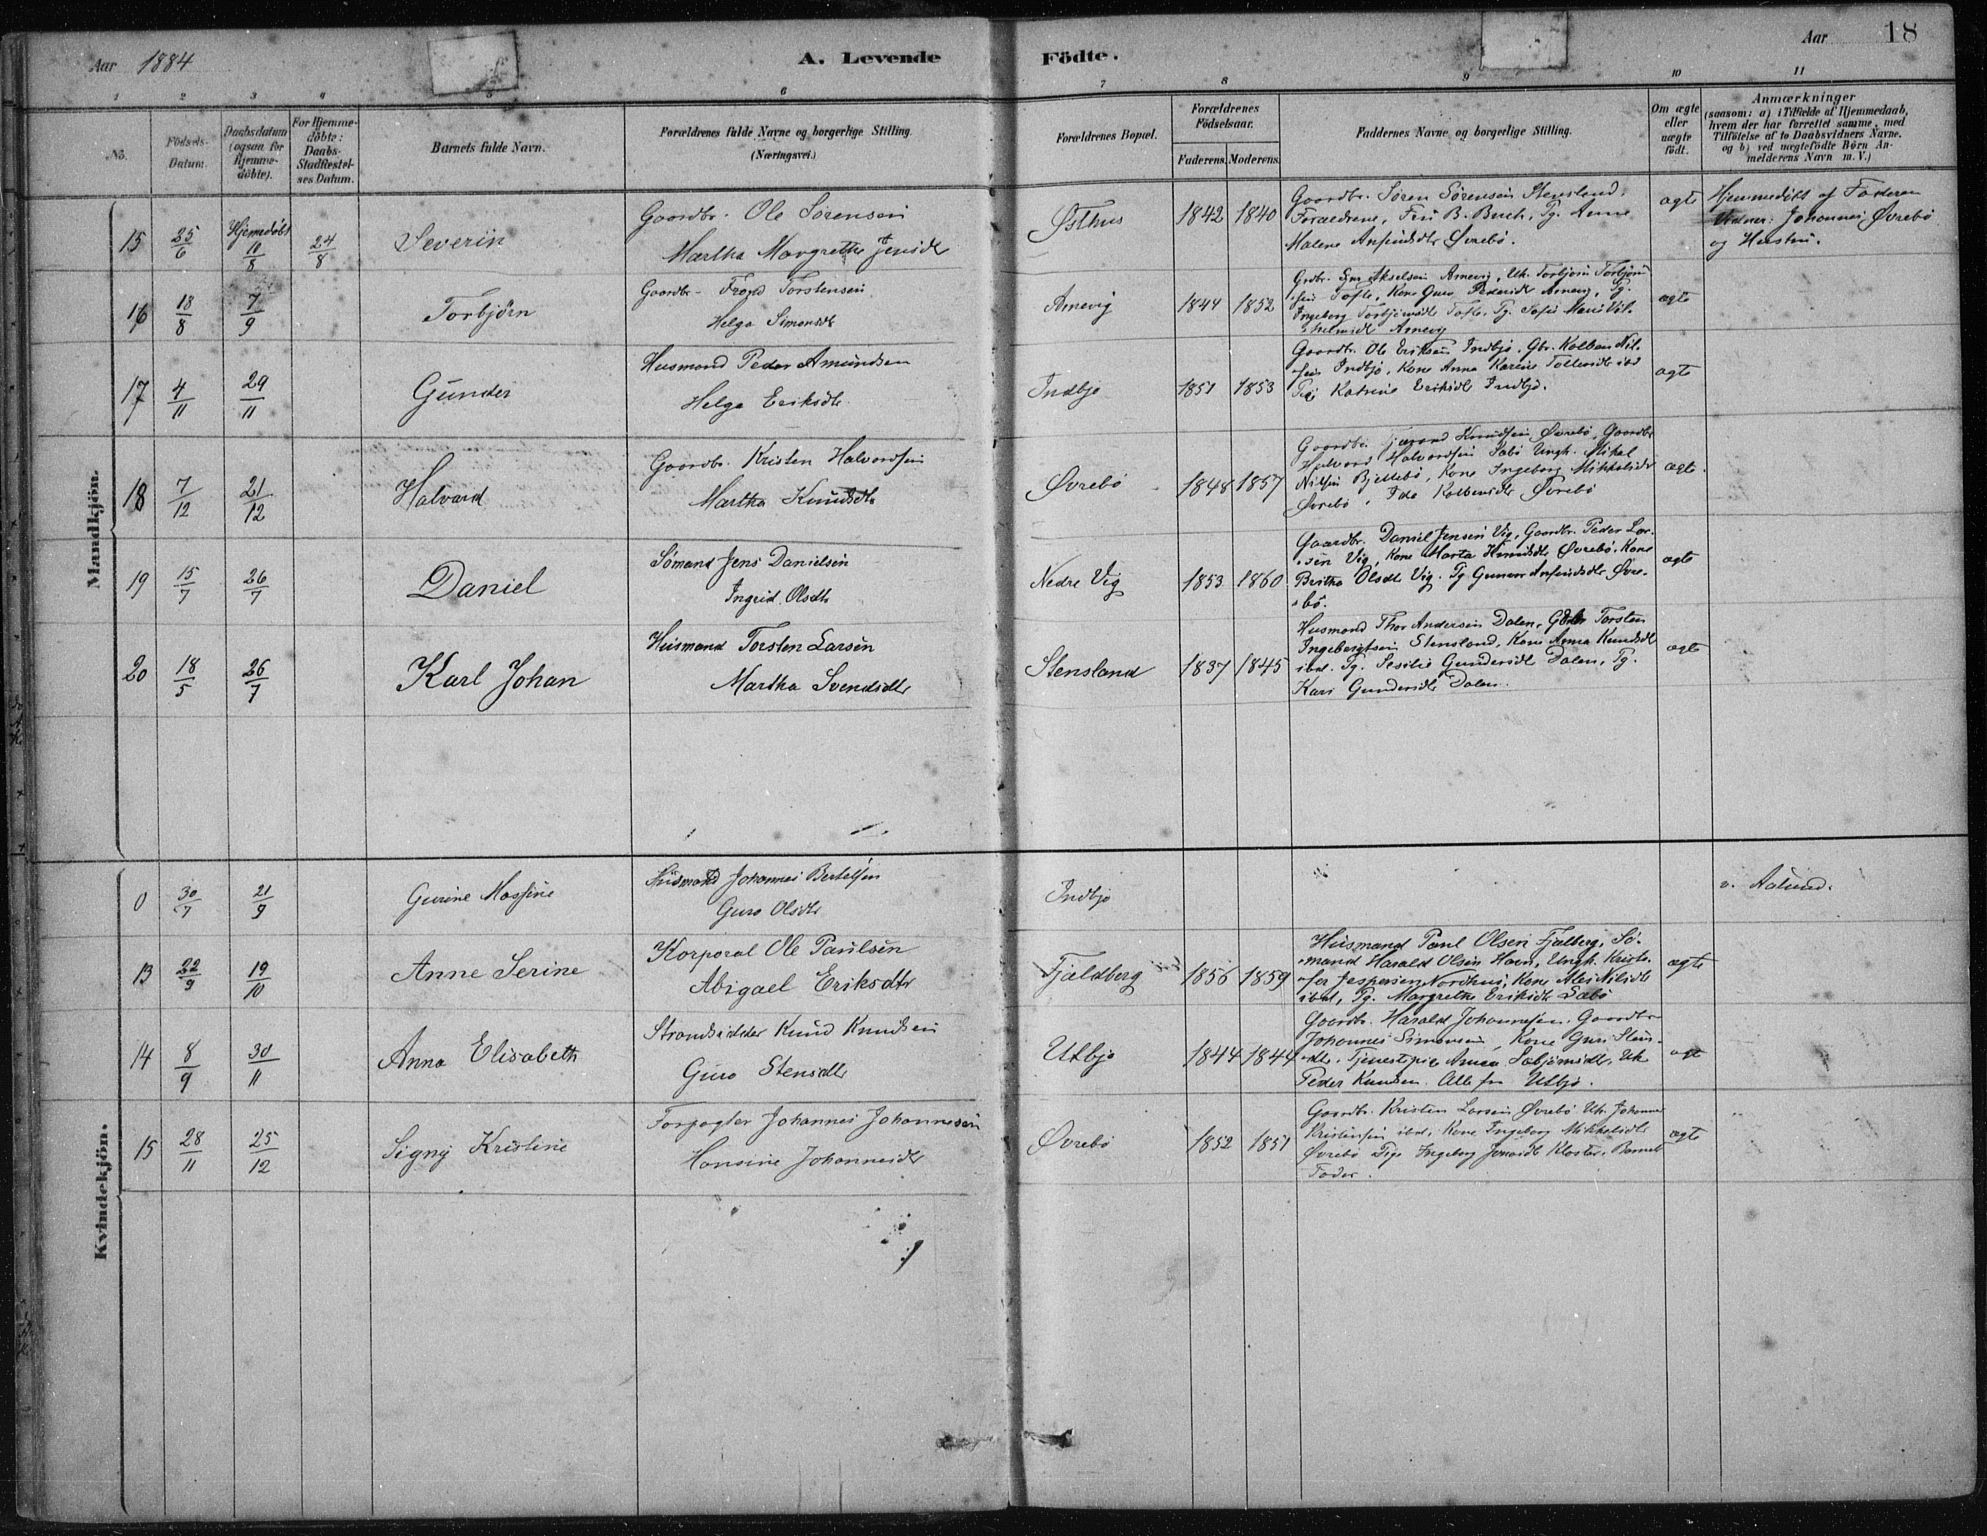 Aar 1884
A. Levende Födte.
Aar 18
1 2 3 4 5 6 7 8 9 10 11
No.
Födsels-
Datum.
Daabsdatum
(ogsaa for
Hjemme-
döbte).
For Hjemme-
döbte:
Daabs-
Stadfæstel-
ses Datum.
Barnets fulde Navn.
Forældrenes fulde Navne og borgerlige Stilling.
(Næringsvei.)
Forældrenes Bopæl.
Forældrenes
Födselsaar.
Faderens. Moderens.
Faddernes Navne og borgerlige Stilling.
Om ægte
eller
uægte
født.
Anmærkninger
(saasom: a) i Tilfælde af Hjemmedaab,
hvem der har forrettet samme, med
Tilföielse af to Daabsvidners Navne.
og b) ved uægtefödte Börn An-
melderens Navn m. V.)
Mandkjön.
15 25/6 Hjemedöbt 10/8 24/8 Severin
Gaardbr. Ole Sørensen
Martha Margrethe Jensdtr
Østhus 1842 1840
Gaardbr. Søren Sørensen Stensland,
Forældrene, Fru B. Buch, Pg. Anne
Malene Anfindsdtr Øvrebö.
ægte
Hjemmedöbt af Faderen
Vidner: Johannes Øvrebö
og Hustru.
16 18/8 7/9 Torbjörn
Gaardbr. Torstensen
Helga Simonsdtr
Amevig 1844 1852
Akselsen Amevig, Uk. Torbjørn Torbjörn-
sen Tofte, Kone Guro Pedersdtr Amevig, Pg.
Ingeborg Torbjörnsdtr Tofte, Pg. Sofie Marie Vil-
helmsdtr Amevig
ægte
17 4/11 29/11 Gunder
Husmand Peder Amundsen
Helga Eriksdtr
Indbjo 1851 1853
Gaardbr. Ole Eriksen Indbjo, Gbr. Kolben Nil-
sen Indbjö, Kone Anna Karine Tollesdtr ibd
Pige Katrine Eriksdtr Indbjö.
ægte
18 7/12 21/12 Halvard
Gaardbr. Kristen Halvordsen
Martha Knudsdtr
Øvrebö 1848 1857
Gaardbr. Knudsen Øvrebö, Gaardbr
Halvord Halvordsen Sabö Ungk. Mikal
Nilsen Bjellebö, Kone Ingeborg Mikkelsdtr
Øvrebö, Ida Kolbensdtr Øvrebö
ægte
19 15/7 26/7 Daniel
Sømand Jens Danielsen
Ingrid Olsdtr
Nedre Vig 1853 1860
Gaardbr. Daniel Jensen Vig, Gaardbr. Peder Lar-
sen Vig, Kone Marta Knudsdtr Øvrebö, Kone
Britha Olsdtr Vig. Pg Gunnor Anfindsdtr Øvre-
bö.
ægte
20 18/5 26/7 Karl Johan
Husmand Torsten Larsen
Martha Svendsdtr
Stensland 1837 1845
Husmand Thor Andersen Dalen, Gbr Torsten
Ingebrigtsen Stensland, Kone Anna Knudsdtr
ibd. Pg. Sesilie Gundersdtr Dalen, Pg.
Kari Gundersdtr Dalen.
ægte
Kvindekjön.
0 30/7 21/9 Gurine Massine
Husmand Johannes Bertelsen
Guro Olsdtr
Indbjo
v. Aalund.
13 22/9 19/10 Anne Serine
Korporal Ole Paulsen
Abigael Eriksdtr
Fjældberg 1856 1859
Husmand Paul Olsen Fjælberg, Sö-
mand Harald Olsen Haen, Ungk. Kristo-
fer Jespersen Nordhus, Kone Nilsdtr
ibd, Pg. Margrethe Eriksdtr Sabö
ægte
14 8/9 30/11 Anna Elisabeth
Strandsidder Knud Knudsen
Guro Stensdtr
Utbjo 1844 1844
Gaardbr. Harald Johannesen, Gaardbr
Johannes Simonsen, Kone Guri Sten-
sdtr. Tjenestpie Anna Uk
Peder Knudsen. Alle fra Utbjo.
ægt
15 28/11 25/12 Signy Kristine
Forpagter Johannes Johannesen
Hansine Johannesdtr
Øvrebö 1852 1851
Gaardbr. Kristen Larsen Øvrebö Uk. Johannes
Kristensen ibd, Kone Ingeborg Mikkelsdtr
Øvrebö Pige Ingeborg Jonasdtr Kloster, Barnets
Fader.
ægte